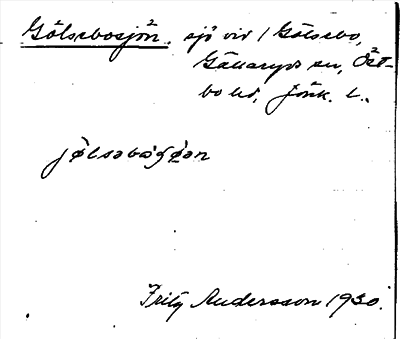 Gölsebosjön, sjö vid / Gölsebo,
Gällaryds sn, Öst-
bo hd, Jönk. l.
jølsəboʃøən
Fritz Andersson 1930.